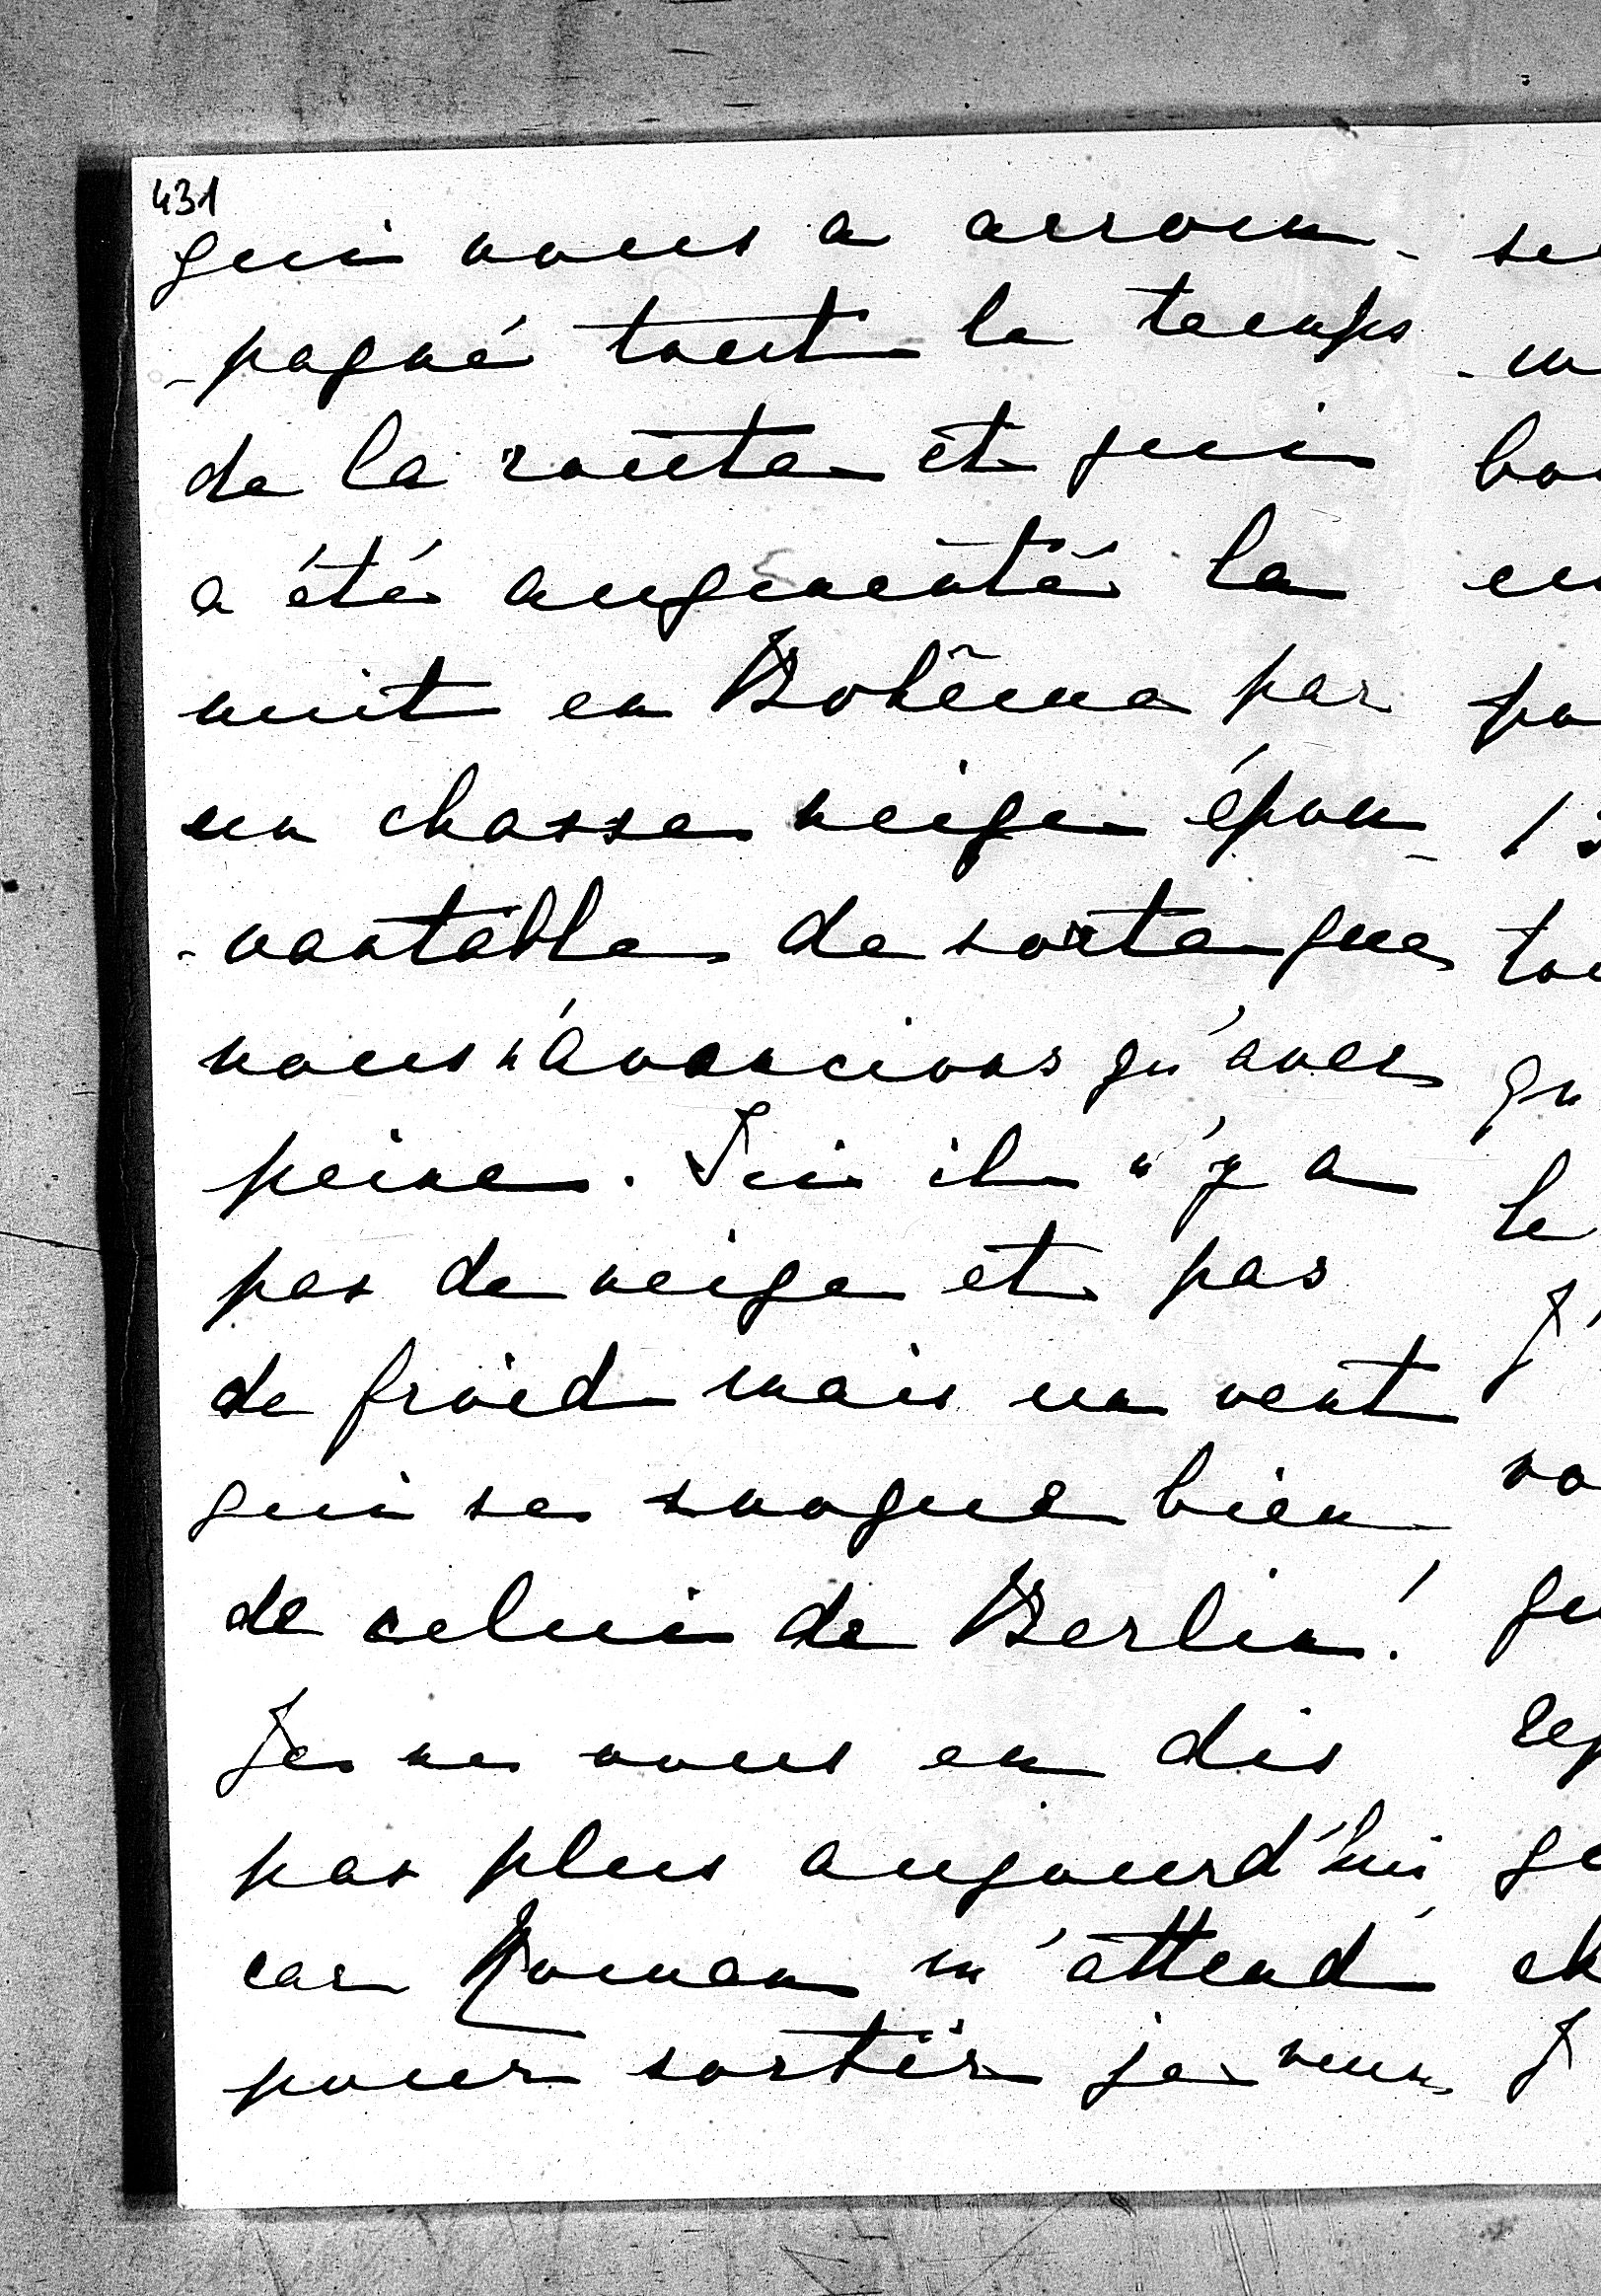 431
qui nous a accom-
-pagné tout le temps
de la route et qui
a été augmenté la
nuit en Bohême par
un chasse neige épou-
-vantable de sorte que
nous n'avancions qu'avec
peine. Ici il n'y a
pas de neige et pas
de froid mais un vent
qui se moque bien
de celui de Berlin!
Je ne vous en dis
pas plus aujourd'hui
car Roman m'attend
pour sortir je veux